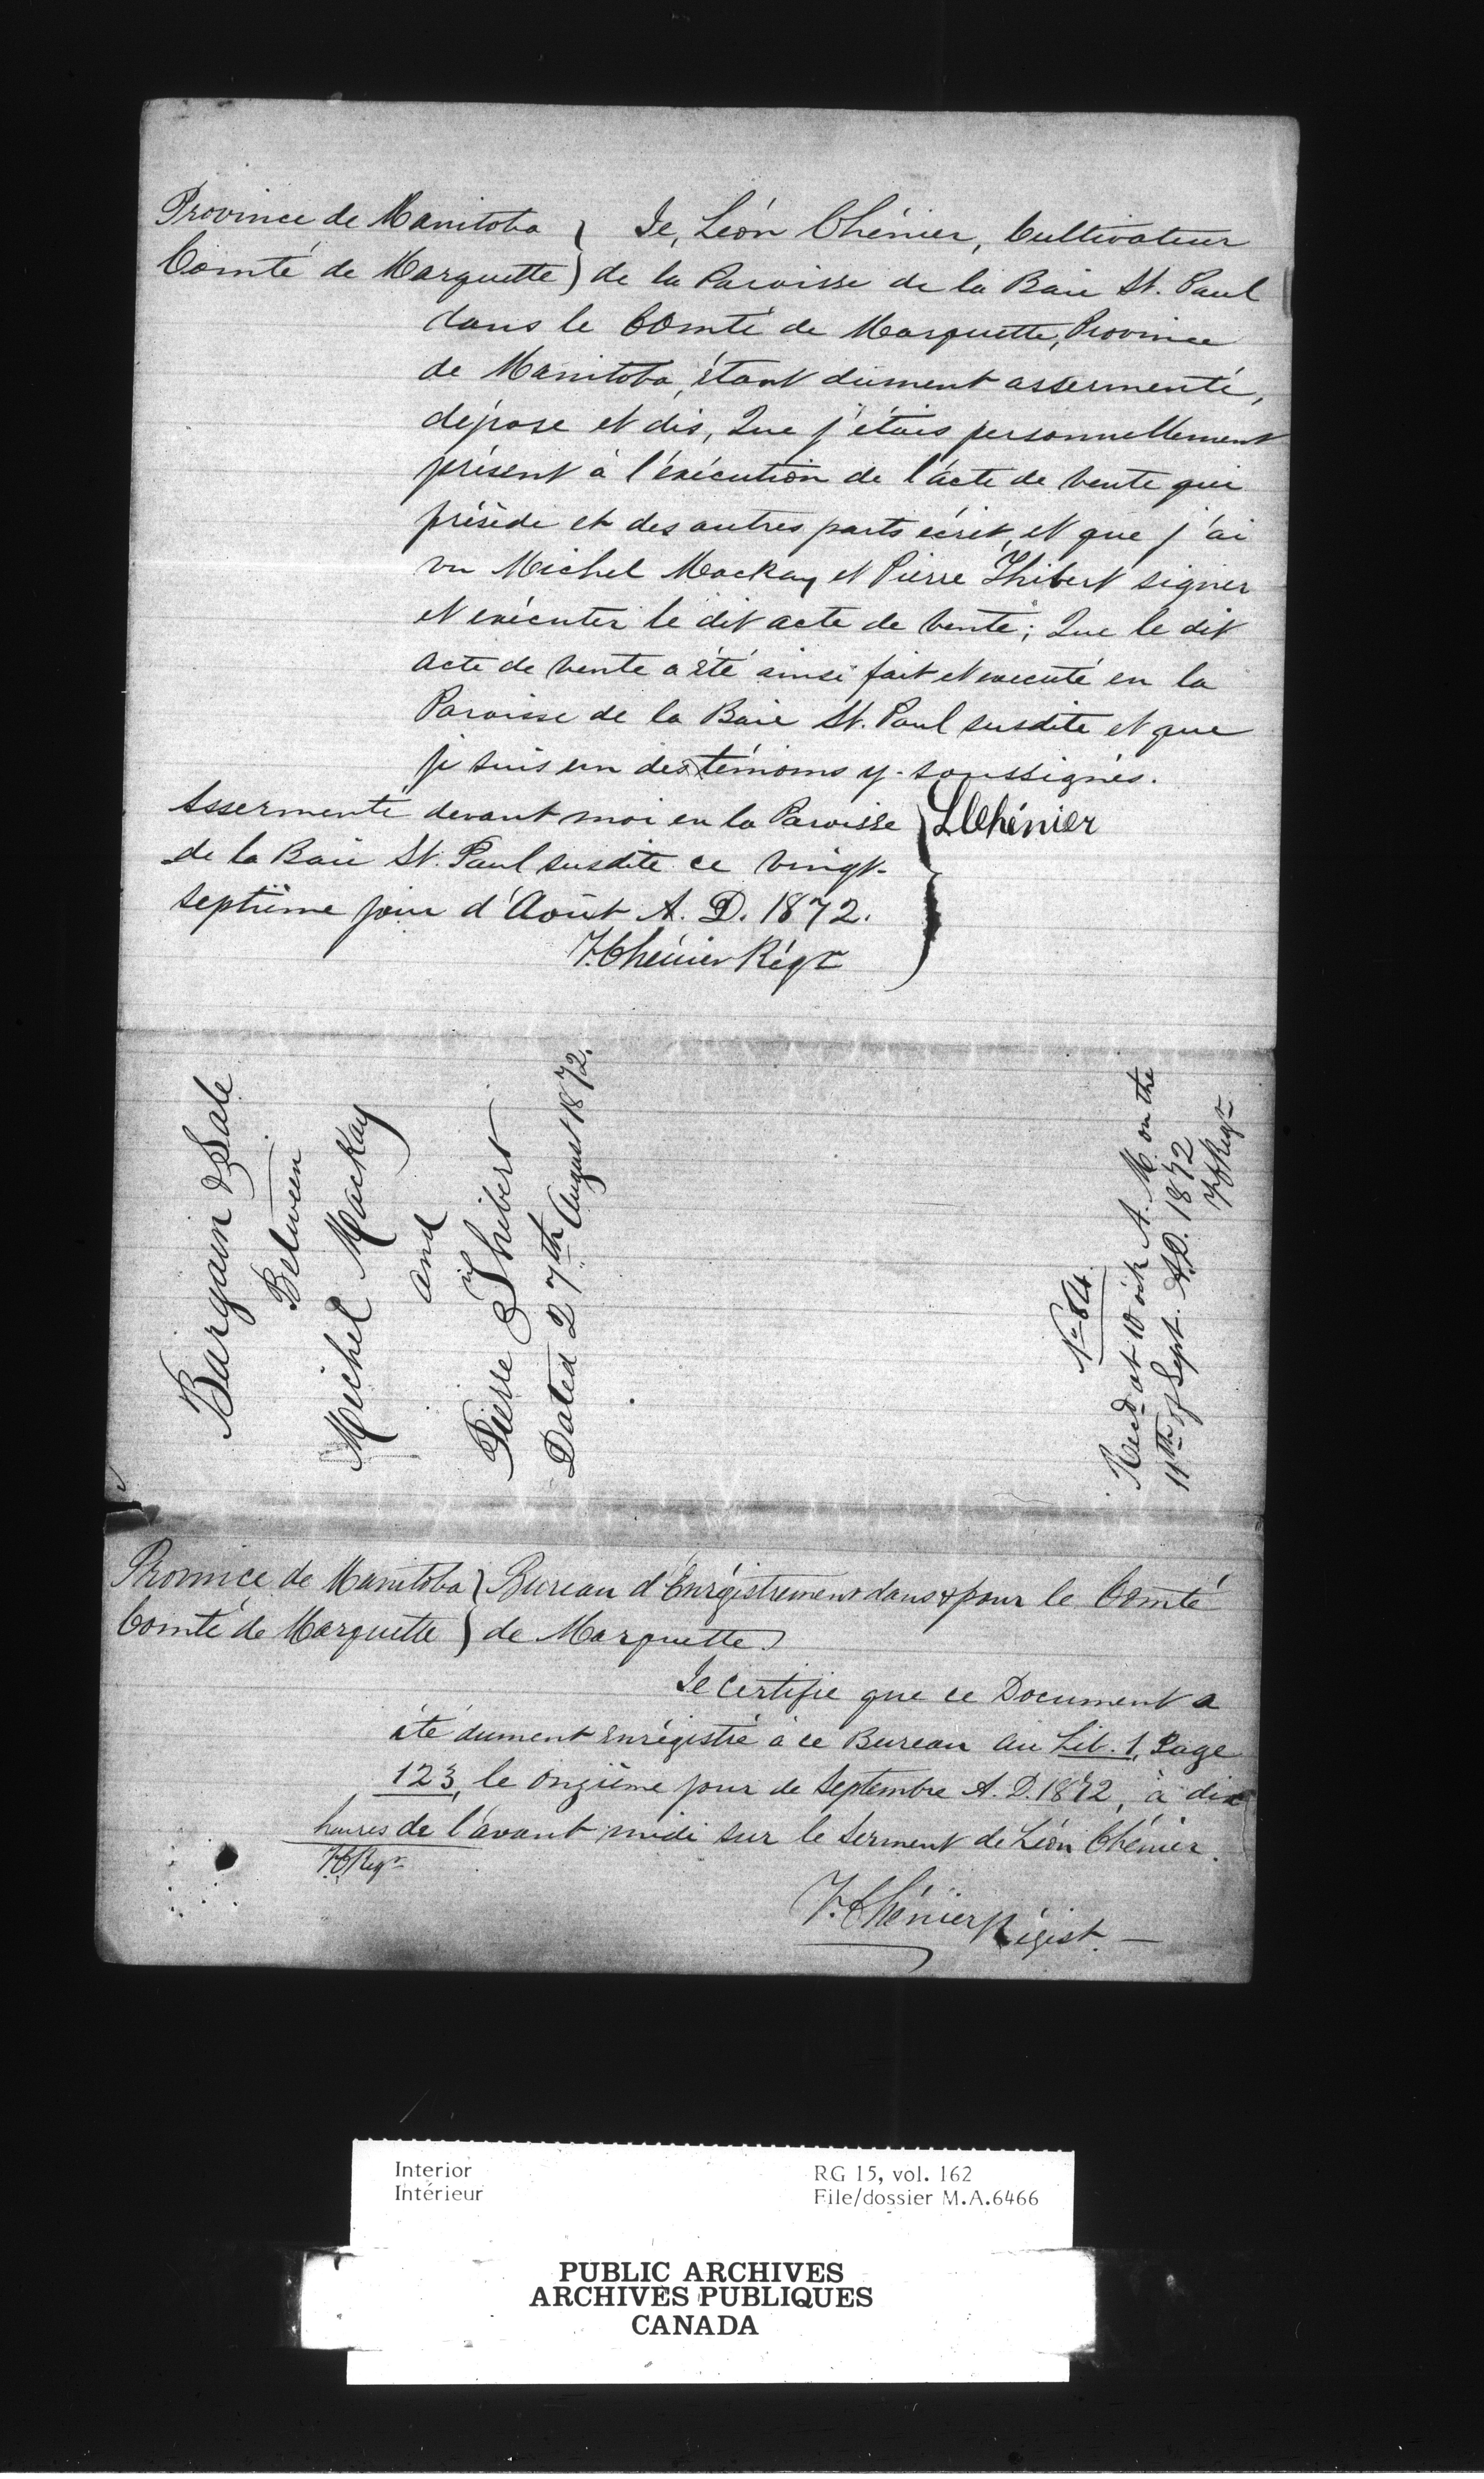 Province de Manitoba } Je, Léon Chénier, Cultivateur
Comté de Marquette } de la Paroisse de la Baie St. Paul
dans le Comté de Marquette, Province
de Manitoba, étant dument assermenté,
dépose et dis, Que j'étais personnellement
présent à l'exécution de l'acte de vente qui
présède et des autres parts écrit, et que j'ai
vu Michel Mackay et Pierre Thibert signer
et exécuter le dit acte de vente; Que le dit
acte de vente a été ainsi fait et executé en la
Paroisse de la Baie St. Paul susdite et que
je suis un des témoins y-soussignés.
Assermenté devant moi en la Paroisse } LChénier
de la Baie St. Paul susdite ce vingt-
septième jour d'Août A. D. 1872.
F. Chénier Régr
Bargain & Sale
Between
Michel Mackay
and
Pierre Thibert
Dated 27th August 1872.
No 84.
Recd at 10 ock A. M. on the
11th of Sept. A.D. 1872
FC Regr
Province de Manitoba } Bureau d'Enrégistrement dans & pour le Comté
Comté de Marquette } de Marquette
Je certifie que ce Document a
été dument enrégistré à ce Bureau au Lib. 1, Page
123, le onzième jour de Septembre A. D. 1872, à dix
heures de l'avant midi sur le serment de Léon Chénier.
FC Regr
F. Chénier Régist.
Interior
Intérieur
RG 15, vol. 162
File/dossier M.A.6466
PUBLIC ARCHIVES
ARCHIVES PUBLIQUES
CANADA